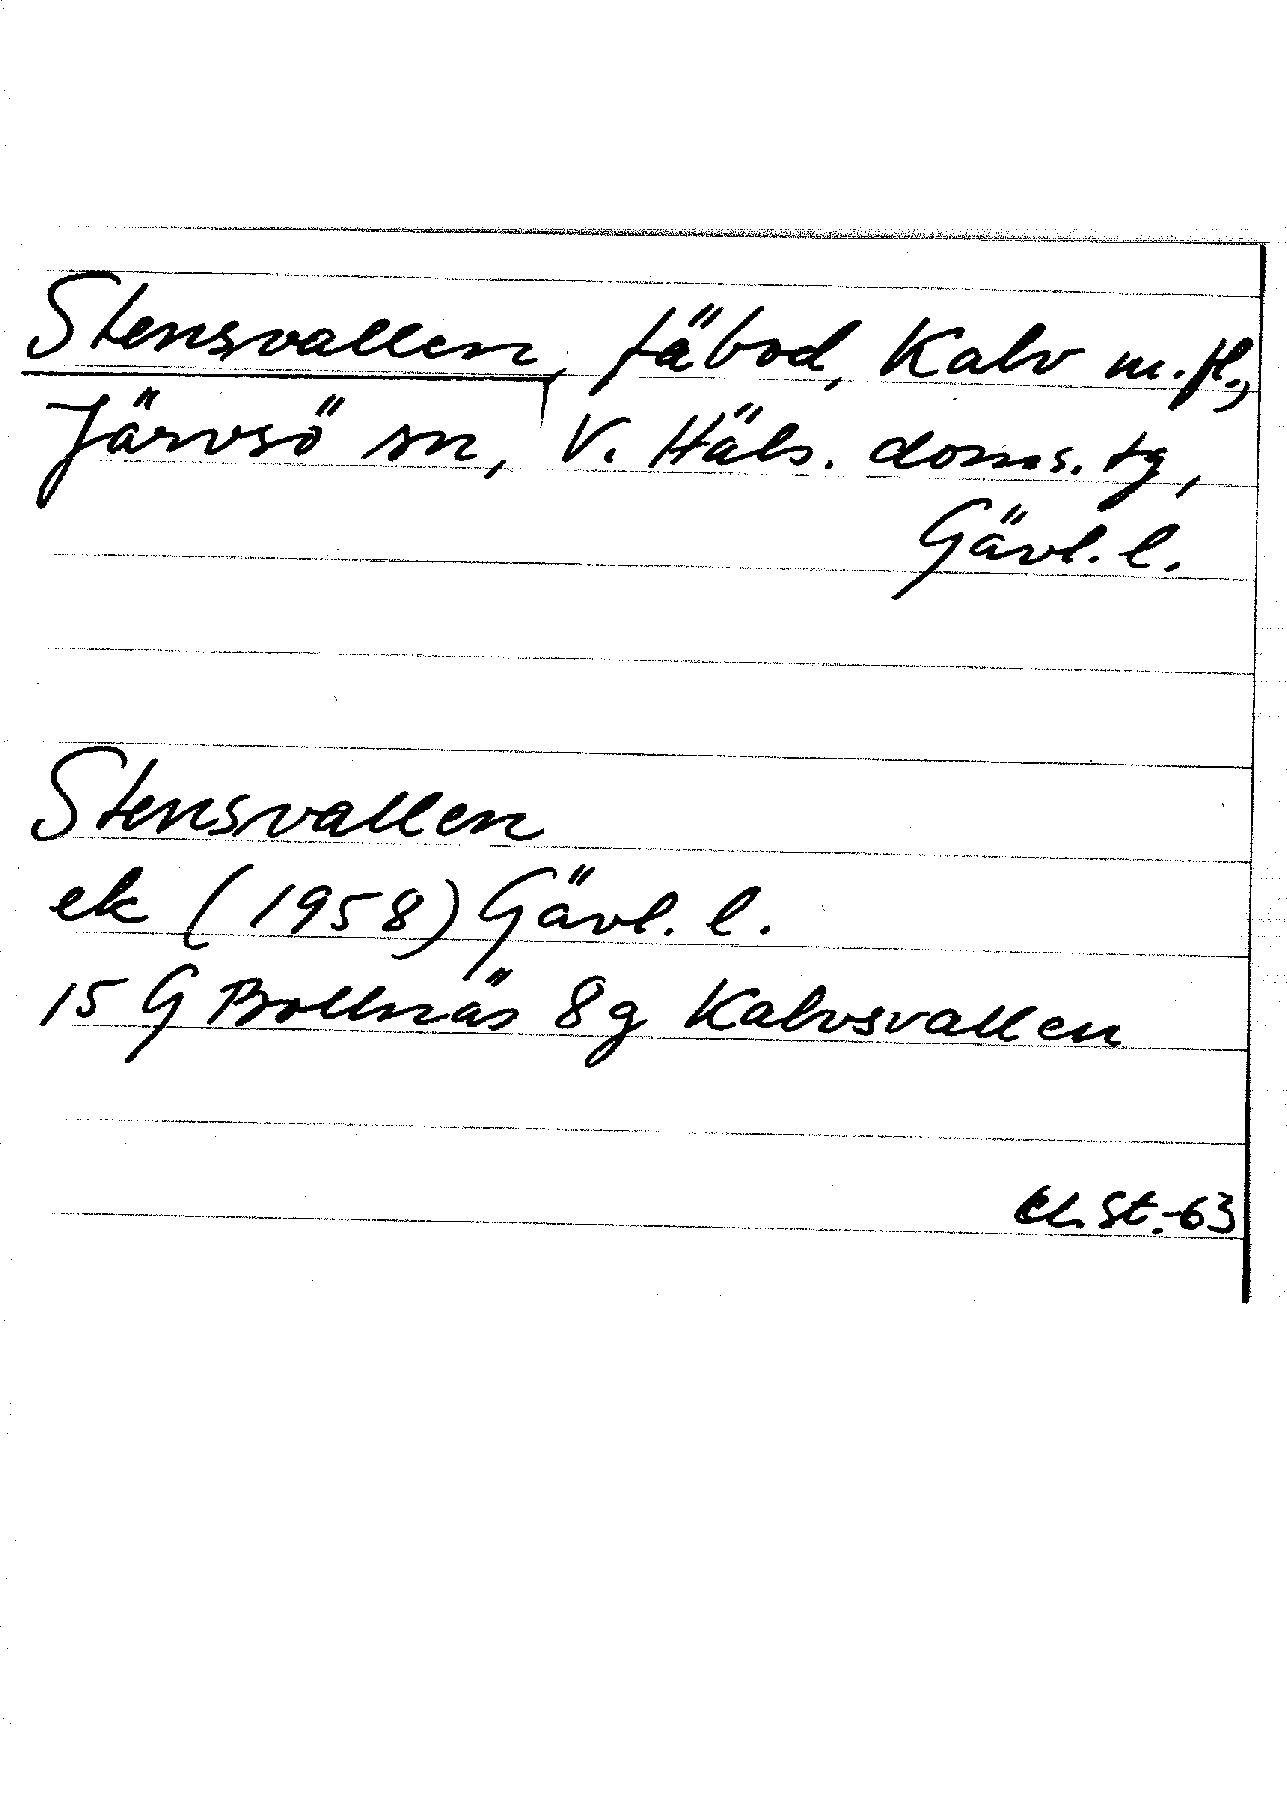 Stensvallen, fäbod, Kalv m.fl.,
Järvsö sn, V. Häls. doms. tg,
Gävl. l.
Stensvallen
ek (1958) Gävl. l.
15 G Bollnäs 8g Kalvsvallen
Cl. St.-63